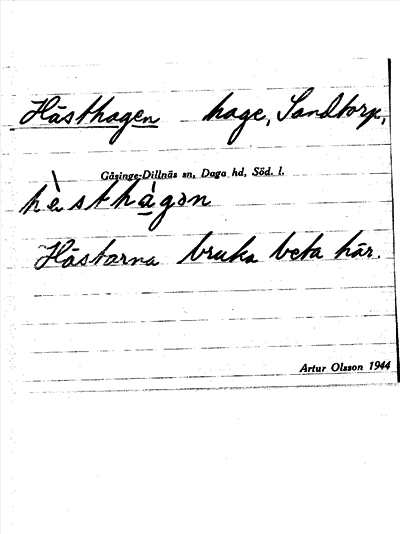 Hästhagen hage, Sandtorp,
Gåsinge-Dillnäs sn, Daga hd, Söd. l.
hὲsthàgɔn
Hästarna bruka beta här.
Artur Olsson 1944